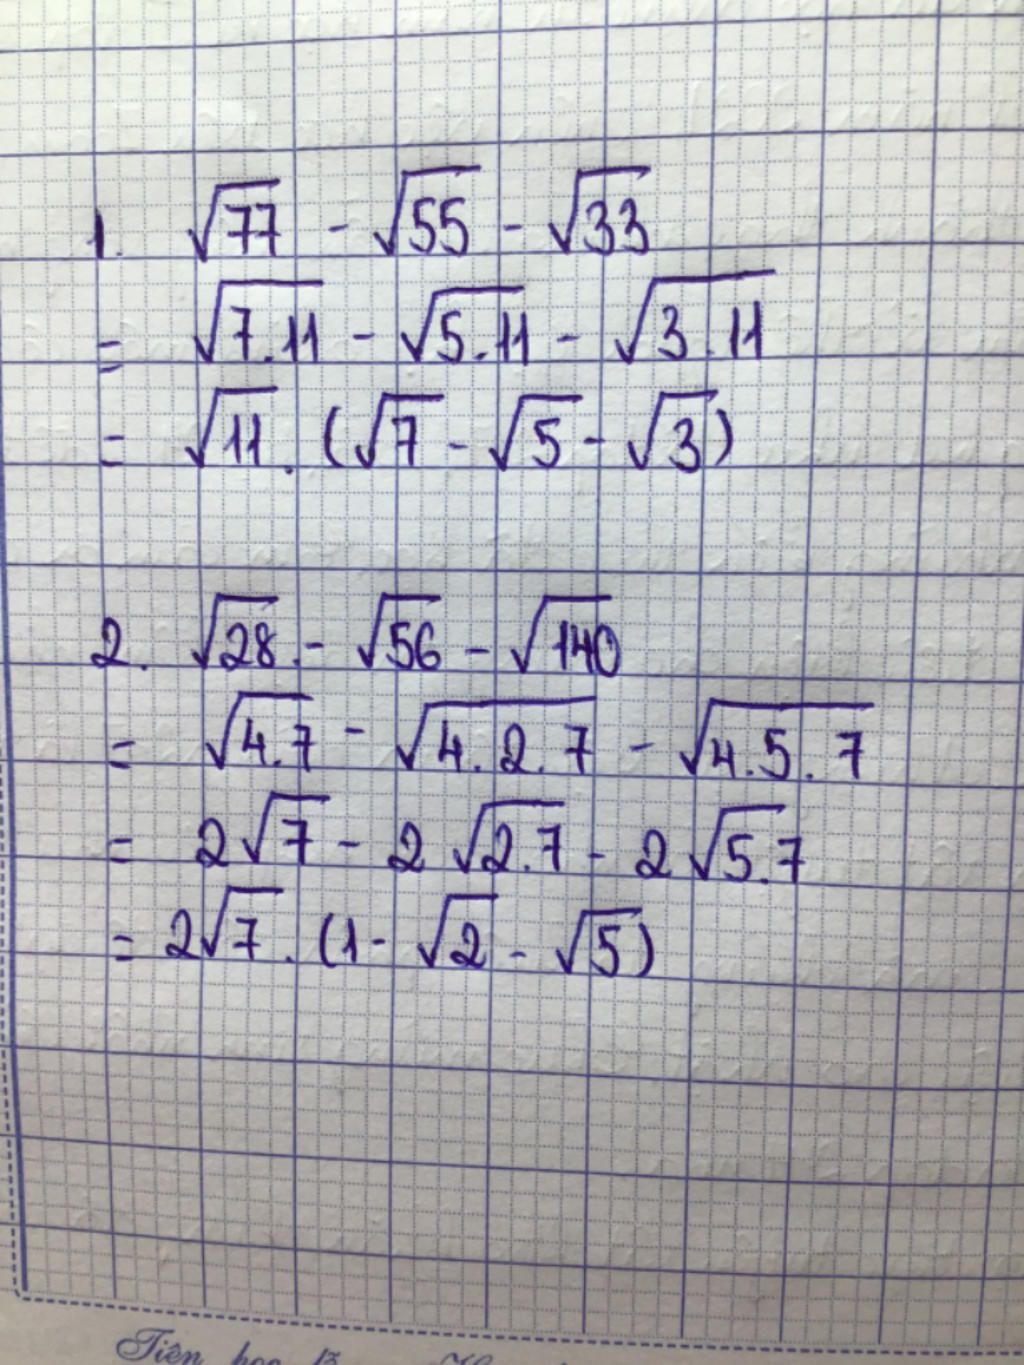 1. √77 - √55 - √33
= √7.11 - √5.11 - √3.11
= √11 . (√7 - √5 - √3)
2. √28 - √56 - √140
= √4.7 - √4.2.7 - √4.5.7
= 2√7 - 2√2.7 - 2√5.7
= 2√7 . (1 - √2 - √5)
Tiên học